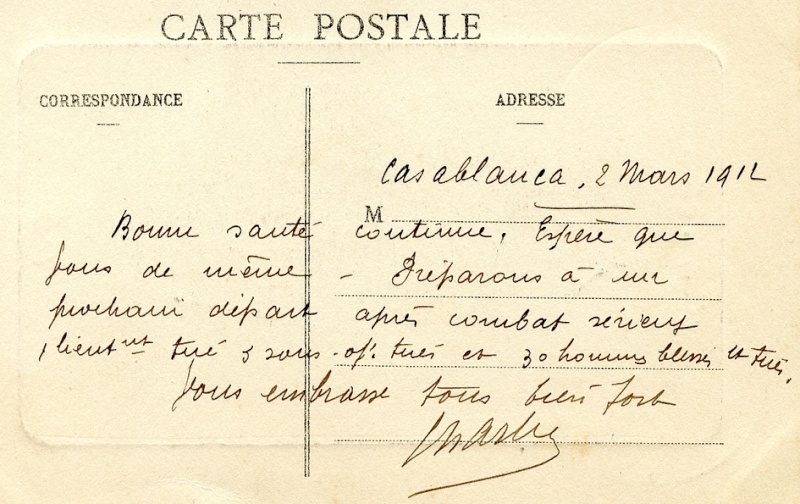 CARTE POSTALE
CORRESPONDANCE
ADRESSE
Casablanca, 2 Mars 1912
M
Bonne santé continue, Espère que
vous de même - Préparons à un
prochain départ après combat sérieux
1 lieutnt tué 3 sous-off. tués et 30 hommes blessés et tués.
Vous embrasse tous bien fort
Charles